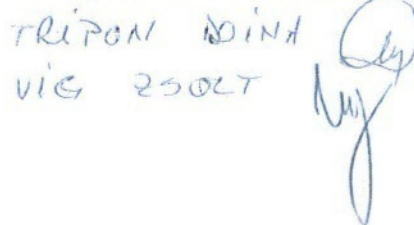 TRIPON ADINA
VIG ZSOLT